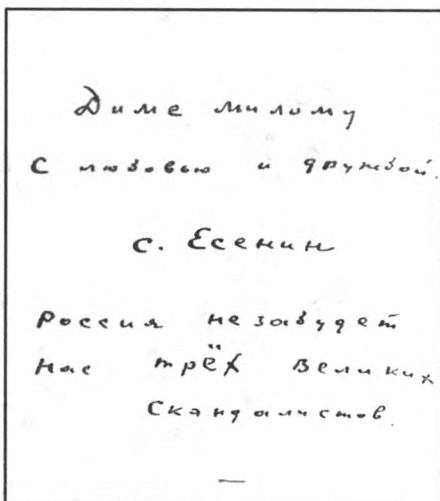 Диме милому
С любовью и дружбой.
С. Есенин
Россия не забудет
нас трёх Великих
Скандалистов.